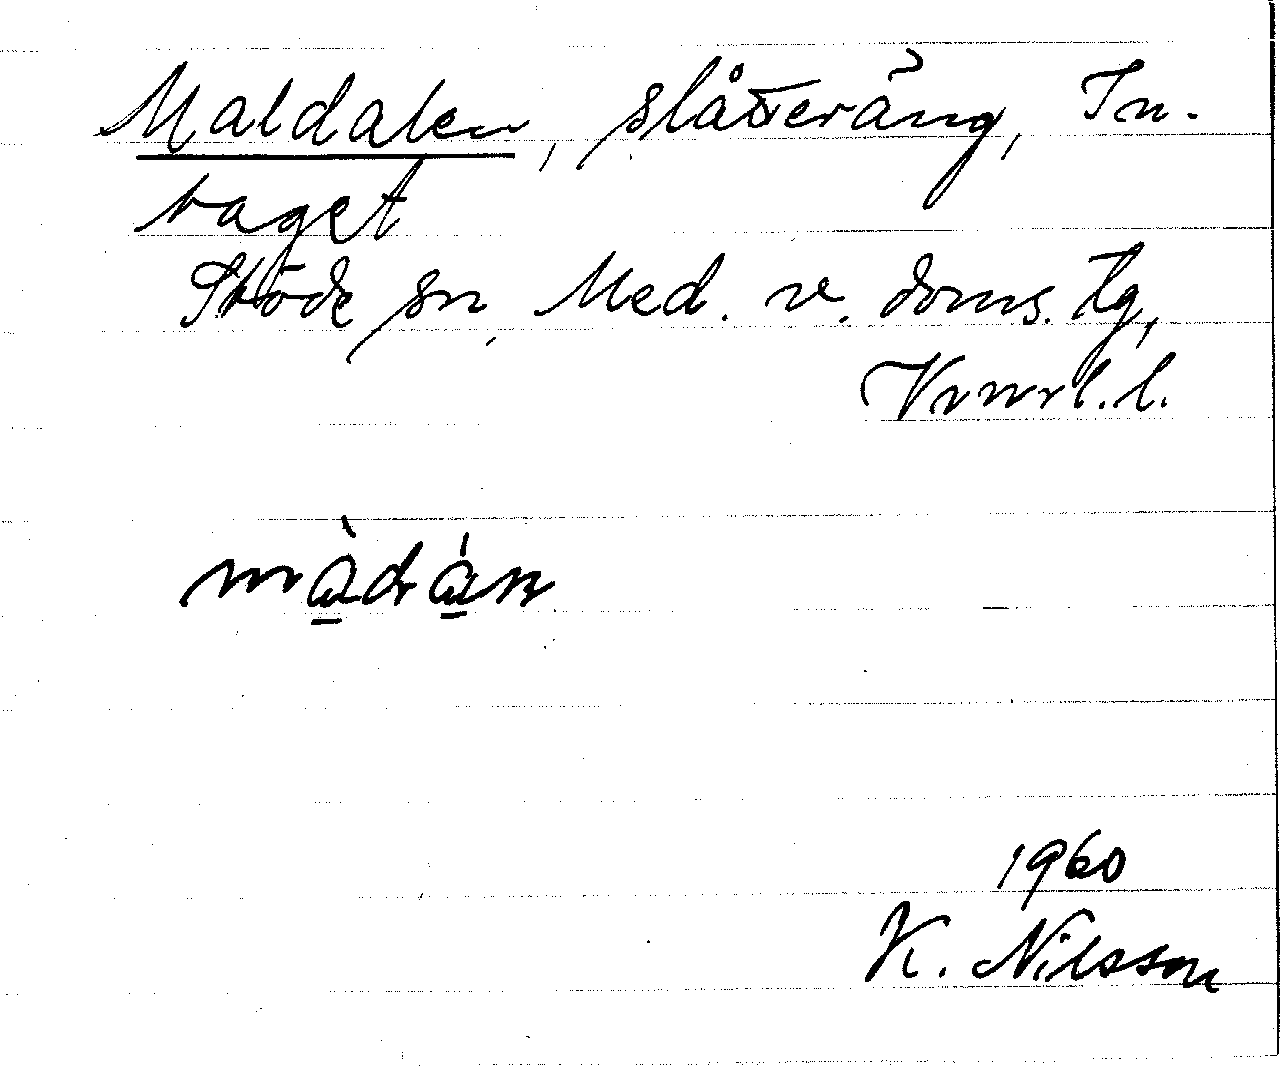 Maldalen, slåtteräng, In-
taget
Stöde sn, Med. v. doms. tg,
Vrnrl. l.
màdán
1960
K. Nilsson